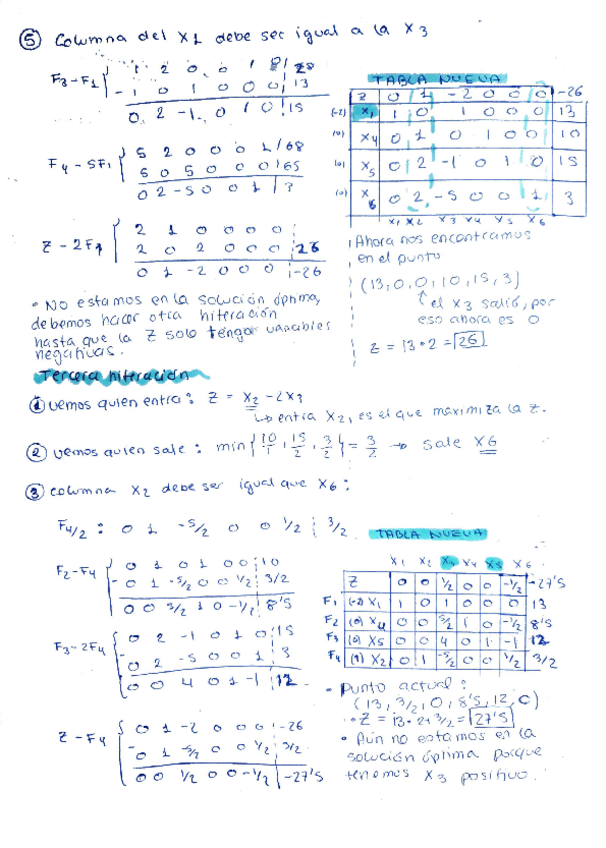 ⑤ Columna del X1 debe ser igual a la X3
F3-F1 { 1 2 0 0 1 0 | 28
- 1 0 1 0 0 0 | 13
0 2 -1 0 1 0 | 15
F4-5F1 { 5 2 0 0 0 1 | 68
5 0 5 0 0 0 | 65
0 2 -5 0 0 1 | 3
Z-2F1 { 2 1 0 0 0 0 |
2 0 2 0 0 0 | 26
0 1 -2 0 0 0 | -26
TABLA NUEVA
Z 0 1 -2 0 0 0 -26
(-2) X1 1 0 1 0 0 0 13
(0) X4 0 1 0 1 0 0 10
(0) X5 0 2 -1 0 1 0 15
(0) X6 0 2 -5 0 0 1 3
X1 X2 X3 X4 X5 X6
Ahora nos encontramos
en el punto
(13,0,0,10,15,3)
el X3 salió, por
eso ahora es 0
Z = 13·2 = 26
• No estamos en la solución óptima,
debemos hacer otra hiteración
hasta que la Z solo tengar variables
negativas.
Tercera hiteración
① vemos quien entra: Z = X2 - 2X3
↳ entra X2, es el que maximiza la Z.
② vemos quien sale: min{10/1, 15/2, 3/2} = 3/2 → sale X6
③ columna X2 debe ser igual que X6:
F4/2 : 0 1 -5/2 0 0 1/2 | 3/2
F2-F4 { 0 1 0 1 0 0 | 10
- 0 1 -5/2 0 0 1/2 | 3/2
0 0 5/2 1 0 -1/2 | 8'5
F3-2F4 { 0 2 -1 0 1 0 | 15
- 0 2 -5 0 0 1 | 3
0 0 4 0 1 -1 | 12
Z-F4 { 0 1 -2 0 0 0 | -26
- 0 1 -5/2 0 0 1/2 | 3/2
0 0 1/2 0 0 -1/2 | -27'5
TABLA NUEVA
X1 X2 X3 X4 X5 X6
Z 0 0 1/2 0 0 -1/2 -27'5
F1 (-2) X1 1 0 1 0 0 0 13
F2 (0) X4 0 0 5/2 1 0 -1/2 8'5
F3 (0) X5 0 0 4 0 1 -1 12
F4 (1) X2 0 1 -5/2 0 0 1/2 3/2
• Punto actual:
(13, 3/2, 0, 8'5, 12, 0)
• Z = 13·2+3/2 = 27'5
• Aún no estamos en la
solución óptima porque
tenemos X3 positivo.